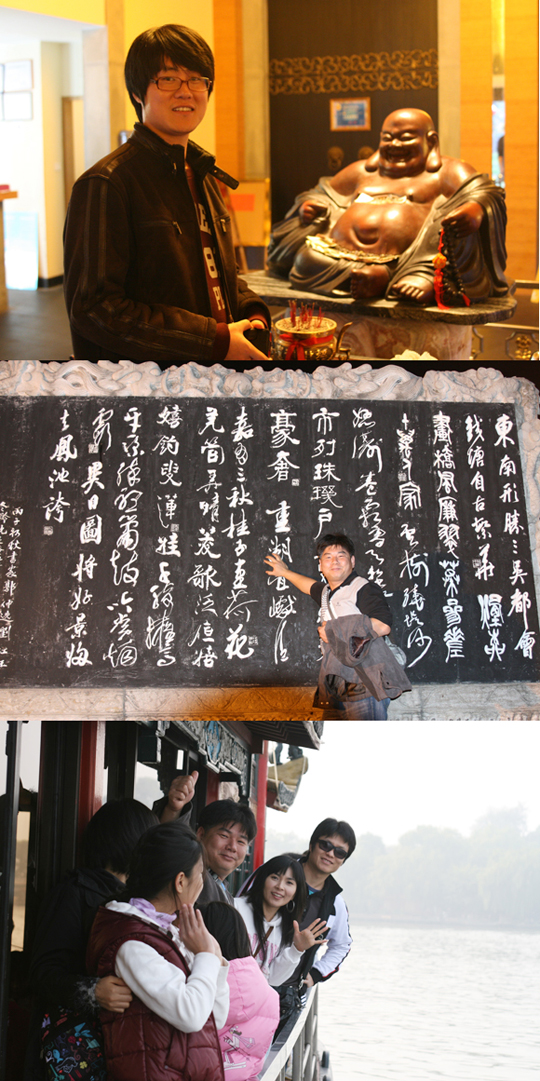 東南形勝三吳都會
錢塘自古繁華煙柳
畫橋風簾翠幕參差
十萬人家雲樹繞堤沙
怒濤卷霜雪天
市列珠璣戶
豪奢重湖疊巘清
嘉有三秋桂子十里荷花
羌管弄晴菱歌泛夜嬉
嬉釣叟蓮娃千騎擁高
牙乘醉聽簫鼓吟賞煙
霞異日圖將好景歸
去鳳池誇